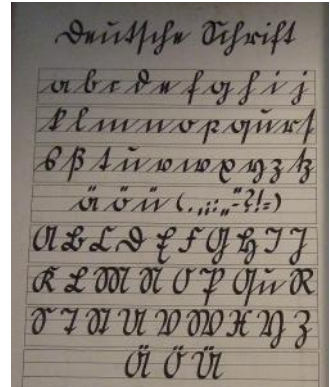 Deutsche Schrift
a b c d e f g h i j
k l m n o p q u r ſ
s ß t u v w x y z tz
ä ö ü ( . , ; : „ “ - ? ! = )
A B C D E F G H I J
K L M N O P Qu R
S T St U V W X Y Z
Ä Ö Ü